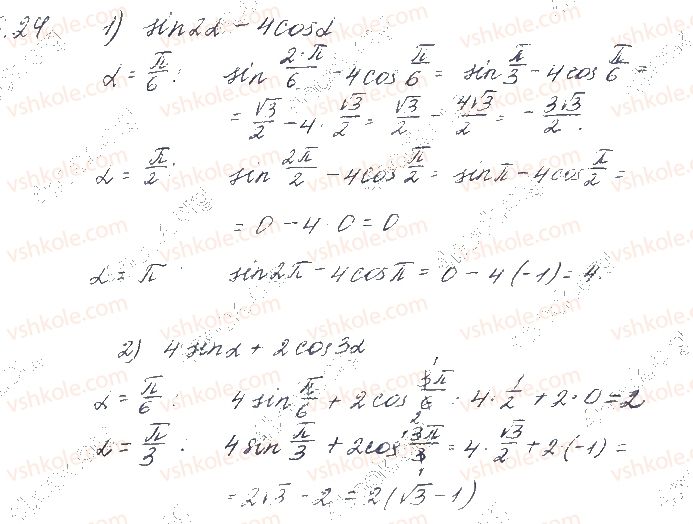 .24 1) sin2α − 4cosα
α = π/6 : sin 2·π/6 − 4cos π/6 = sin π/3 − 4cos π/6 =
= √3/2 − 4 · √3/2 = √3/2 − 4√3/2 = − 3√3/2.
α = π/2 : sin 2π/2 − 4cos π/2 = sinπ − 4cos π/2 =
= 0 − 4 · 0 = 0
α = π sin2π − 4cosπ = 0 − 4(−1) = 4.
2) 4sinα + 2cos3α
α = π/6 : 4sin π/6 + 2cos 3π/6 · 4 · 1/2 + 2 · 0 = 2
α = π/3 : 4sin π/3 + 2cos 3π/3 = 4 · √3/2 + 2·(−1) =
= 2√3 − 2 = 2(√3 − 1)